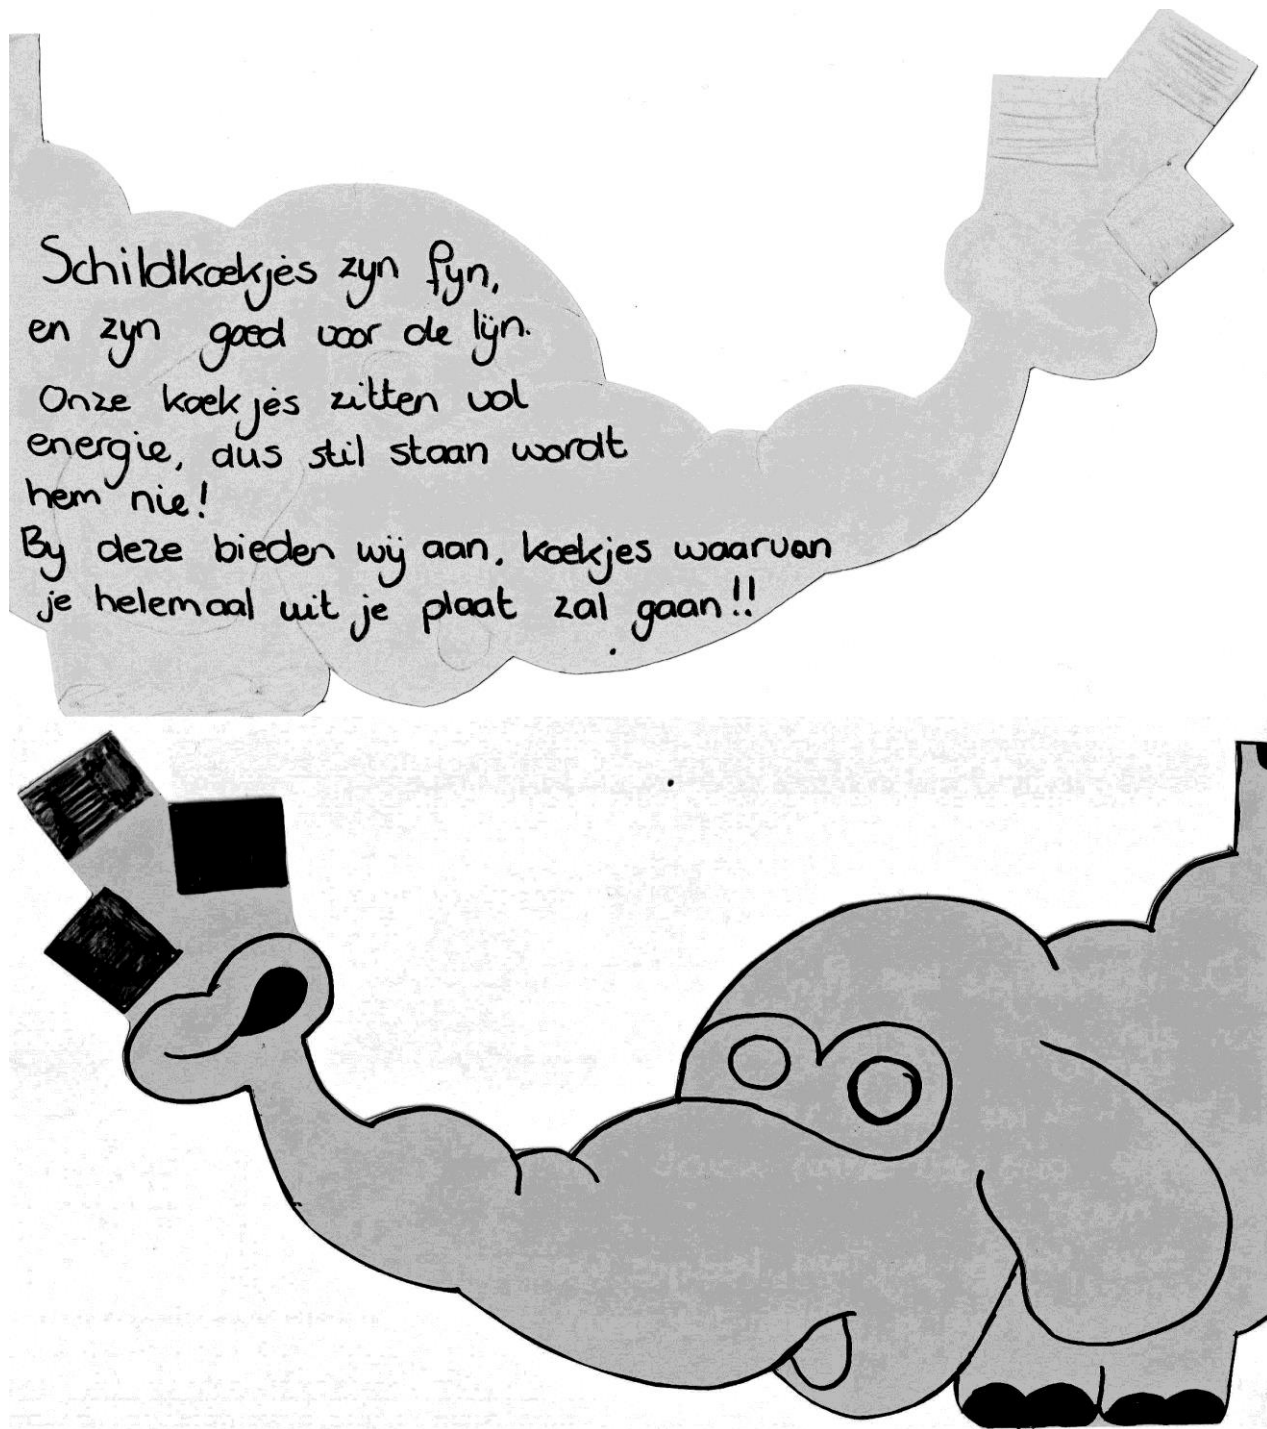 Schildkoekjes zyn fyn,
en zyn goed voor de lijn.
Onze koekjes zitten vol
energie, dus stil staan wordt
hem nie!
By deze bieden wij aan, koekjes waarvan
je helemaal uit je plaat zal gaan!!